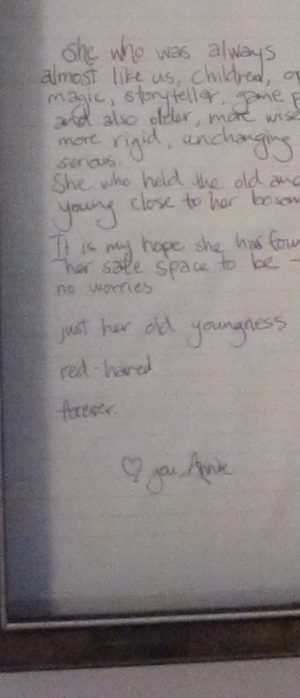 She who was always
almost like us, children, of
magic, storyteller, game p
and also older, more wise
more rigid, unchanging
serious.
She who held the old and
young close to her bosom
It is my hope she has foun
her safe space to be -
no worries
just her old youngness
red-haired
forever.
♡ you Annie